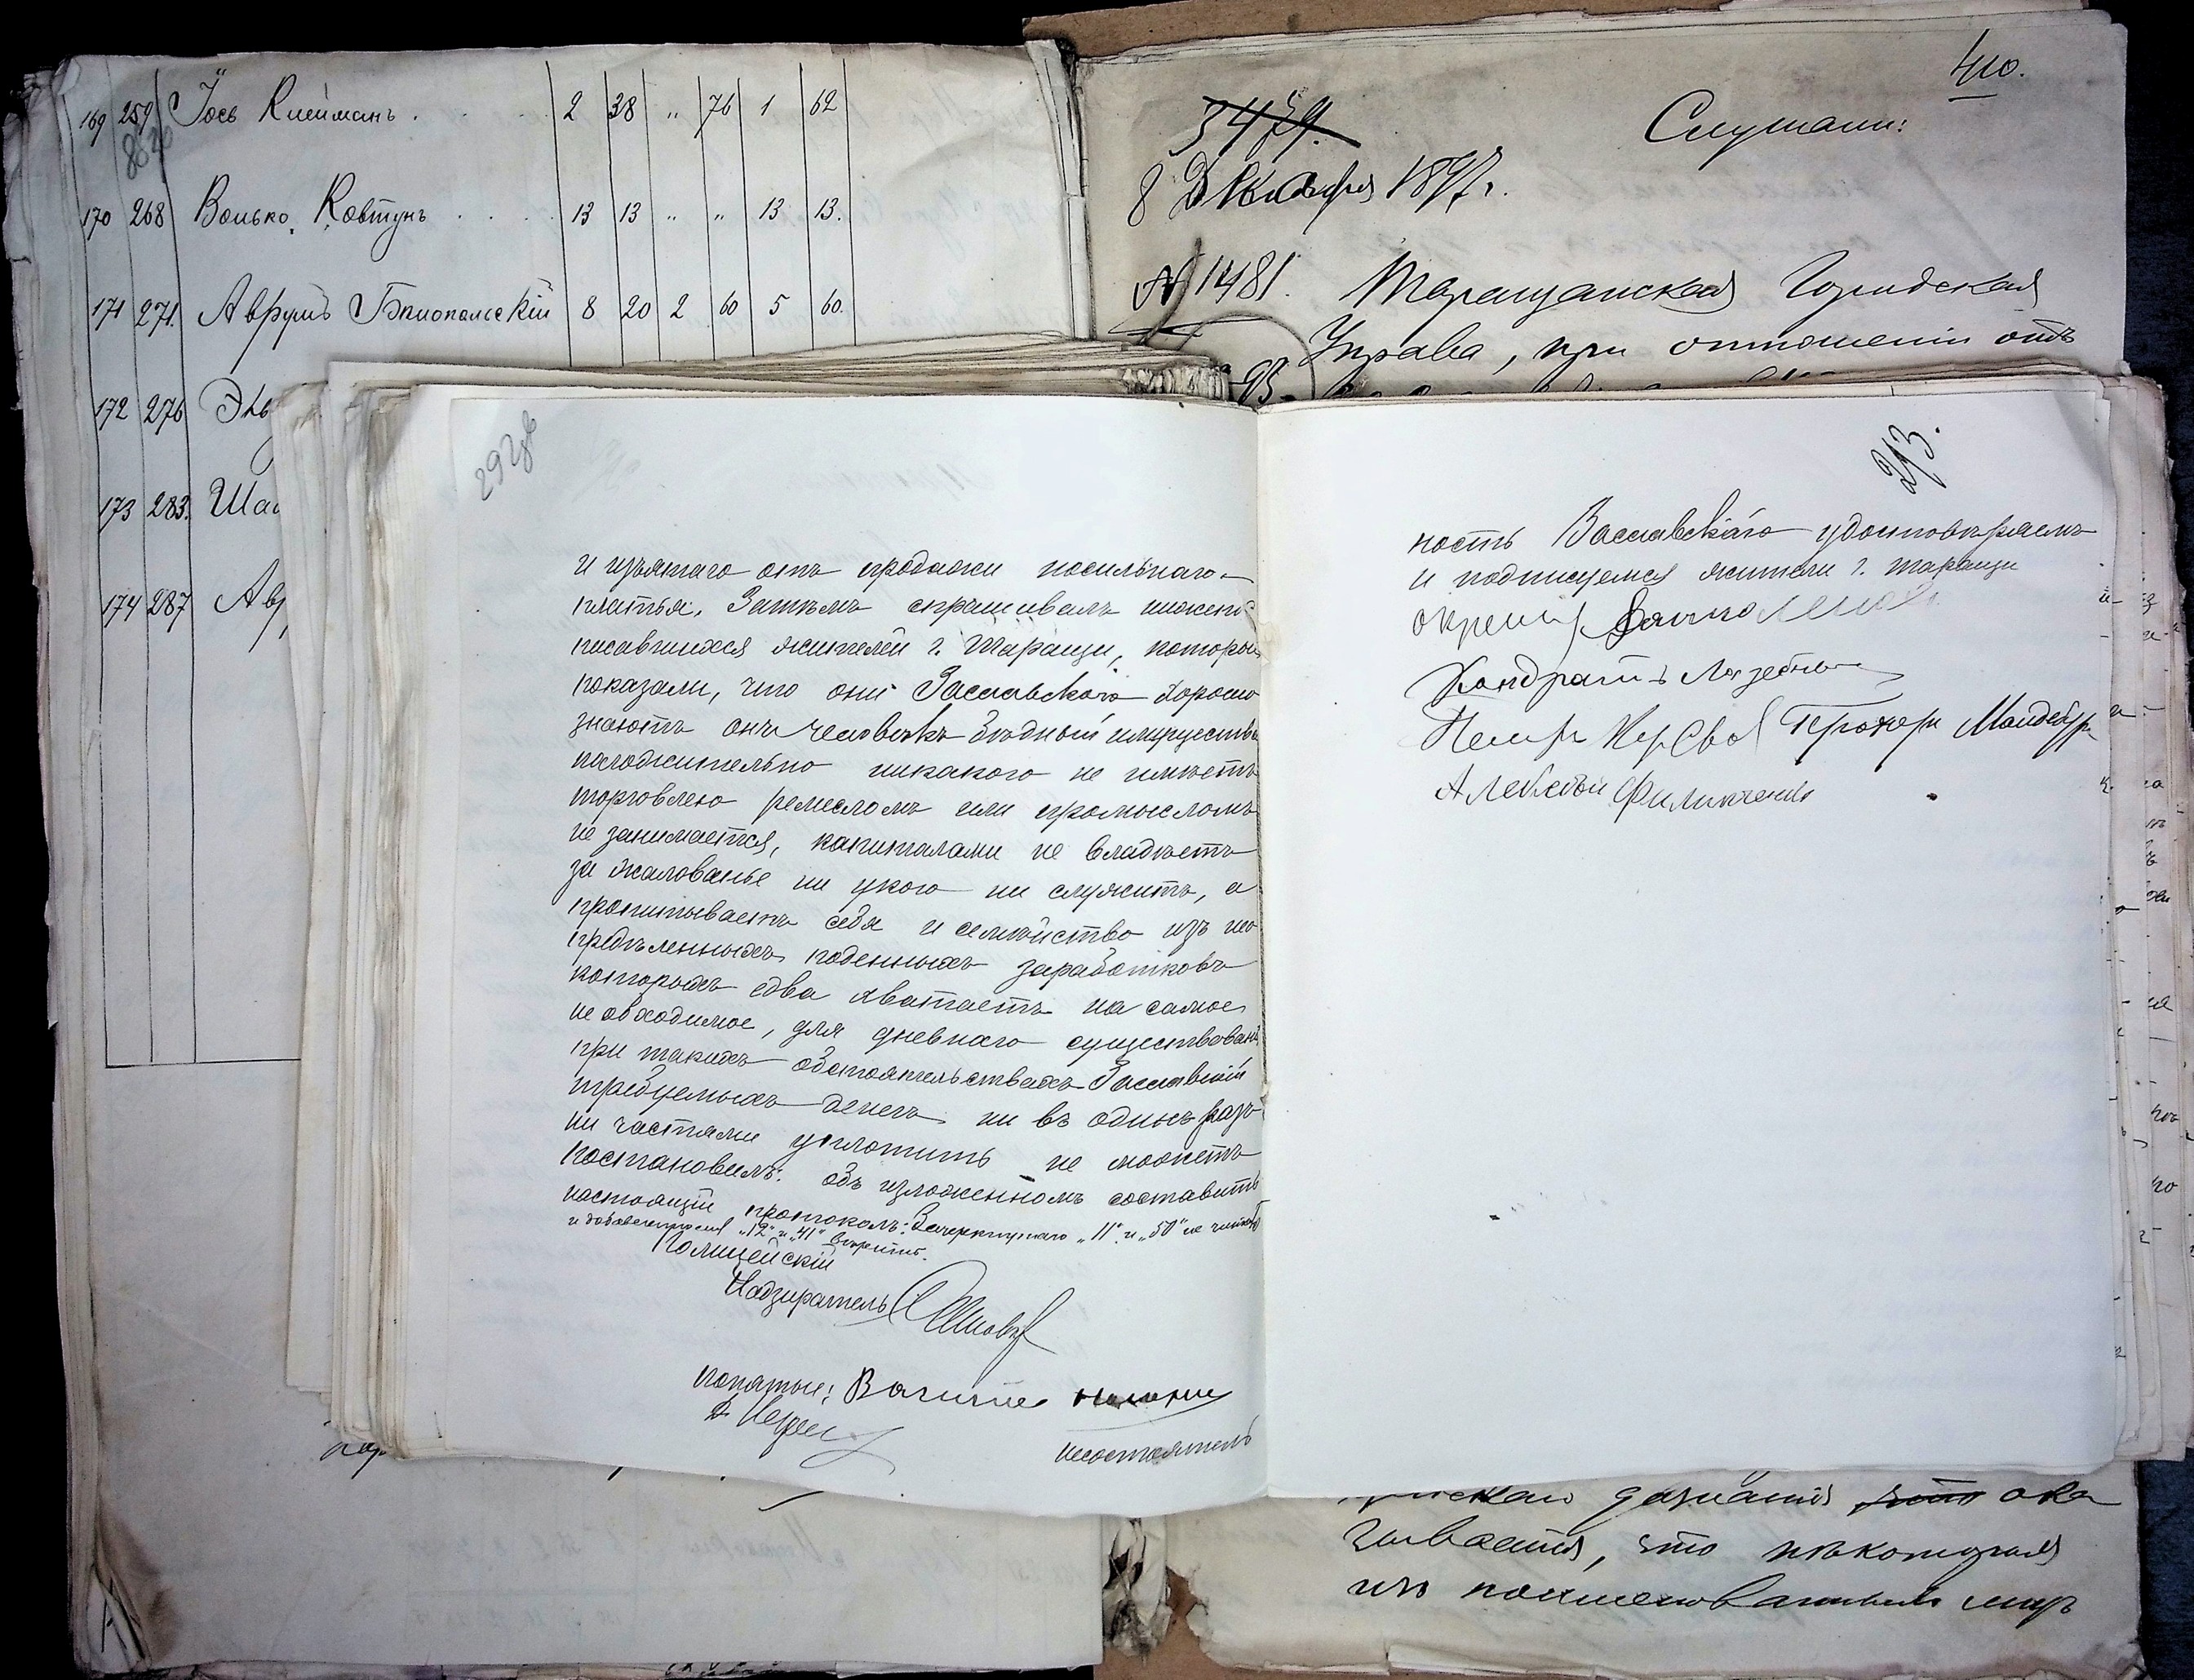 169 259 Іось Клейманъ 2 38 " 76 1 62
170 268 Волько Ковтунъ 13 13 " " 13 13.
171 271. Аврумъ Бѣлопольскій 8 20 2 60 5 60.
172 276
173 283.
174 287
410.
3479.
Слушали:
8 Декабря 1897 г.
№ 1481. Таращанская Городская
Управа, при отношеніи отъ
и изъятаго отъ продажи носильнаго
платья. Затѣмъ спрашивалъ нижепод
писавшихся жителей г. Таращи, которые
показали, что они Заславскаго хорошо
знаютъ онъ человѣкъ бѣдный имущества
положительно никакого не имѣетъ
торговлею ремесломъ или промысломъ
не занимается, капиталами не владѣетъ
за жалованье ни укого ни служитъ, а
пропитываетъ себя и семейство изъ ио
предѣленныхъ поденныхъ заработковъ
которыхъ едва хватаетъ на самое
не обходимое, для дневнаго существован
при такихъ обстоятельствахъ Заславскій
требуемыхъ денегъ ни въ одинъ разъ
ни частями уплотить не можетъ
постановилъ: объ изложенномъ составить
настоящій протоколъ: Зачеркнутаго „11" и „50" не читать
и добавленному „12" и „41" вѣрить.
Полицейскій
Надзиратель
понятые:
несостоятель
293.
ность Заславскаго удостовѣряемъ
и подписуемся жители г. таращи
Кондратъ
Прохоръ
Алексѣй Филипченко
дознанія что ока
зывается, что нѣкоторыя
изъ поименованныхъ лицъ